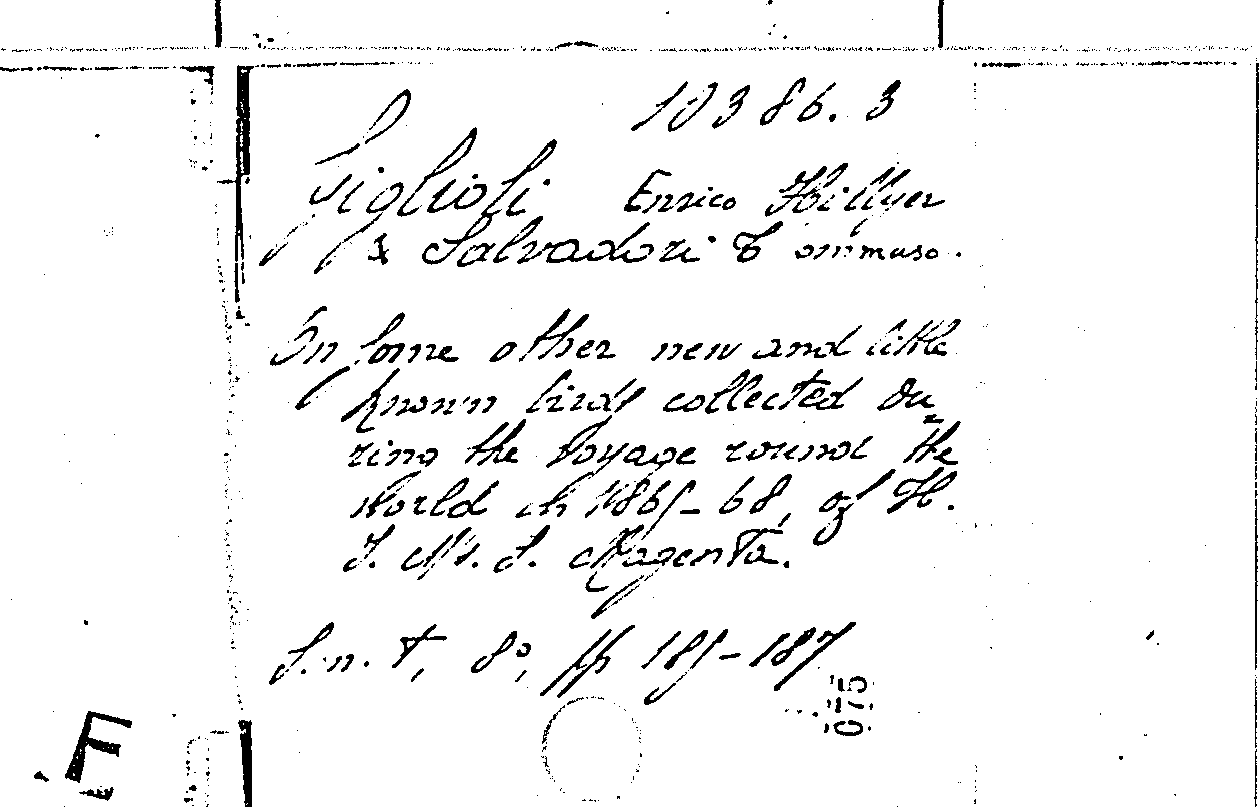 10386.3
Giglioli Enrico Hillyer
& Salvadori Tommaso.
On some other new and little
known birds collected du=
ring the voyage round the
world in 1865-68, of H.
I. M's. S. Magenta.
S. n. t, 8º, pp 185-187
075
F